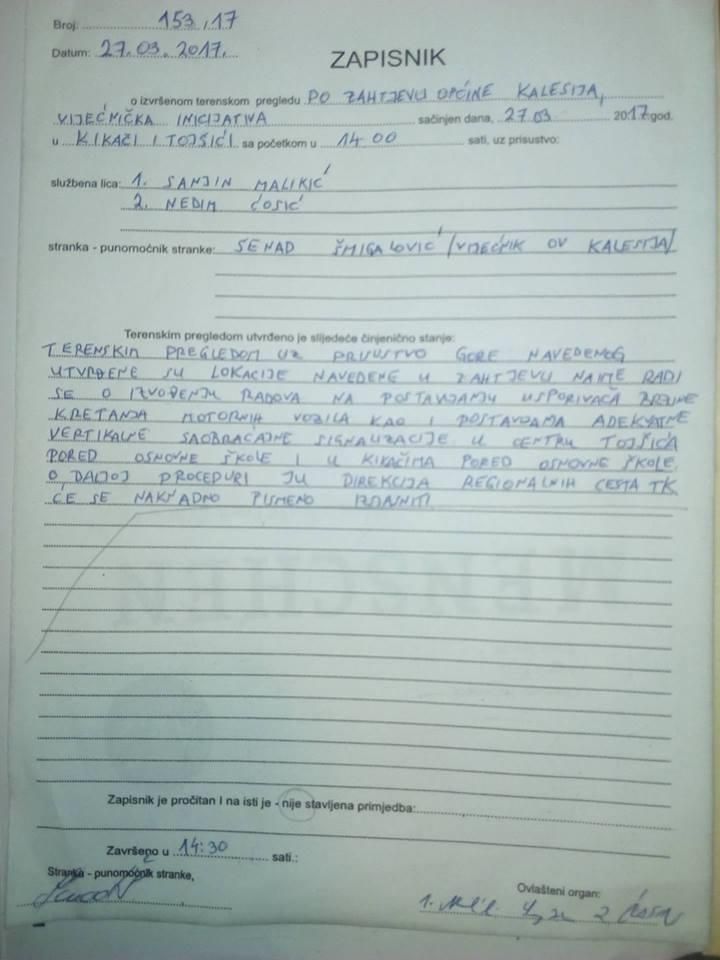 Broj: 153,17
Datum: 27.03.2017.
ZAPISNIK
o izvršenom terenskom pregledu PO ZAHTJEVU OPĆINE KALESIJA,
VIJEĆNIČKA INICIJATIVA sačinjen dana, 27.03 2017 god.
u KIKAČI I TOJŠIĆI sa početkom u 14 00 sati, uz prisustvo:
službena lica: 1. SANJIN MALIKIĆ
2. NEDIM ĆOSIĆ
stranka - punomoćnik stranke: SENAD ŠMIGALOVIĆ /VIJEĆNIK OV KALESIJA/
Terenskim pregledom utvrđeno je slijedeće činjenično stanje:
TERENSKIM PREGLEDOM UZ PRISUSTVO GORE NAVEDENOG
UTVRĐENE SU LOKACIJE NAVEDENE U ZAHTJEVU NAIME RADI
SE O IZVOĐENJU RADOVA NA POSTAVLJANJU USPORIVAČA BRZINE
KRETANJA MOTORNIH VOZILA KAO I POSTAVLJAMA ADEKVATNE
VERTIKALNE SAOBRAĆAJNE SIGNALIZACIJE U CENTRU TOJŠIĆA
PORED OSNOVNE ŠKOLE I U KIKAČIMA PORED OSNOVNE ŠKOLE.
O DALJOJ PROCEDURI JU DIREKCIJA REGIONALNIH CESTA TK
ĆE SE NAKNADNO PISMENO IZJASNITI
MENSCHEN
Zapisnik je pročitan I na isti je - nije stavljena primjedba:
Završeno u 14:30 sati.:
Stranka - punomoćnik stranke,
Ovlašteni organ:
1. 2 Ćosić